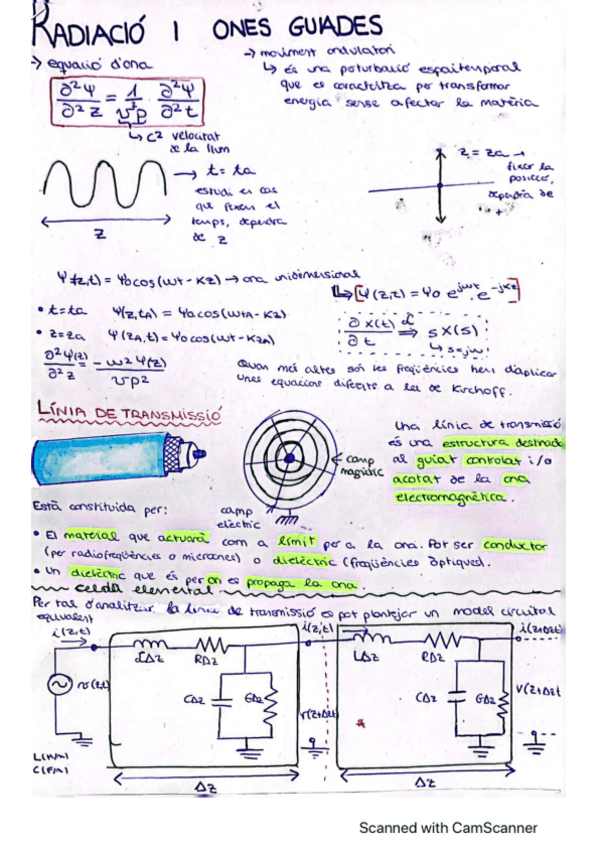 RADIACIÓ I ONES GUIADES
→ equació d'ona
∂²Ψ/∂²z = 1/v²p · ∂²Ψ/∂²t
↳ c² velocitat de la llum
→ moviment ondulatori
↳ és una poturbació espaitemporal
que es caracteritza per transformar
energia sense afectar la matèria
→ t = ta
estudi es cas
que fixem el
temps, dependra
de z
z
z = za →
fixer la
posició,
depedra de
t
Ψ(z,t) = Ψ0 cos(ωt - Kz) → ona unidimensional
↳ [Ψ(z,t) = Ψ0 e^jωt · e^-jKz]
• t=ta Ψ(z,tA) = Ψ0 cos(ωtA - Kz)
• z=za Ψ(zA,t) = Ψ0 cos(ωt - KzA)
∂x(t)/∂t ⇒ℒ s X(s)
↳ s=jω
∂²Ψ(z)/∂²z = -ω²Ψ(z)/vp²
Quan més altes són les freqüències hem d'aplicar
unes equacions diferents a les de Kirchoff.
LÍNIA DE TRANSMISSIÓ
camp
magnètic
camp
elèctric
Una línia de transmissió
és una estructura destinada
al guiat controlat i/o
acotat de la ona
electromagnètica.
Està constituida per:
• El material que actuarà com a límit per a la ona. Pot ser conductor
(per radiofreqüències o microones) o dielèctric (freqüències òptiques).
• Un dielèctric que és per on es propaga la ona.
celda elemental
Per tal d'analitzar la línia de transmissió es pot plantejar un model circuital
equivalent
i(z,t)
v(z,t)
LΔz
RΔz
CΔz
GΔz
i(z,t)
v(z+Δz,t)
LΔz
RΔz
CΔz
GΔz
i(z+Δz,
v(z+Δz,t
L(H/m)
C(F/m)
Δz
Δz
Scanned with CamScanner